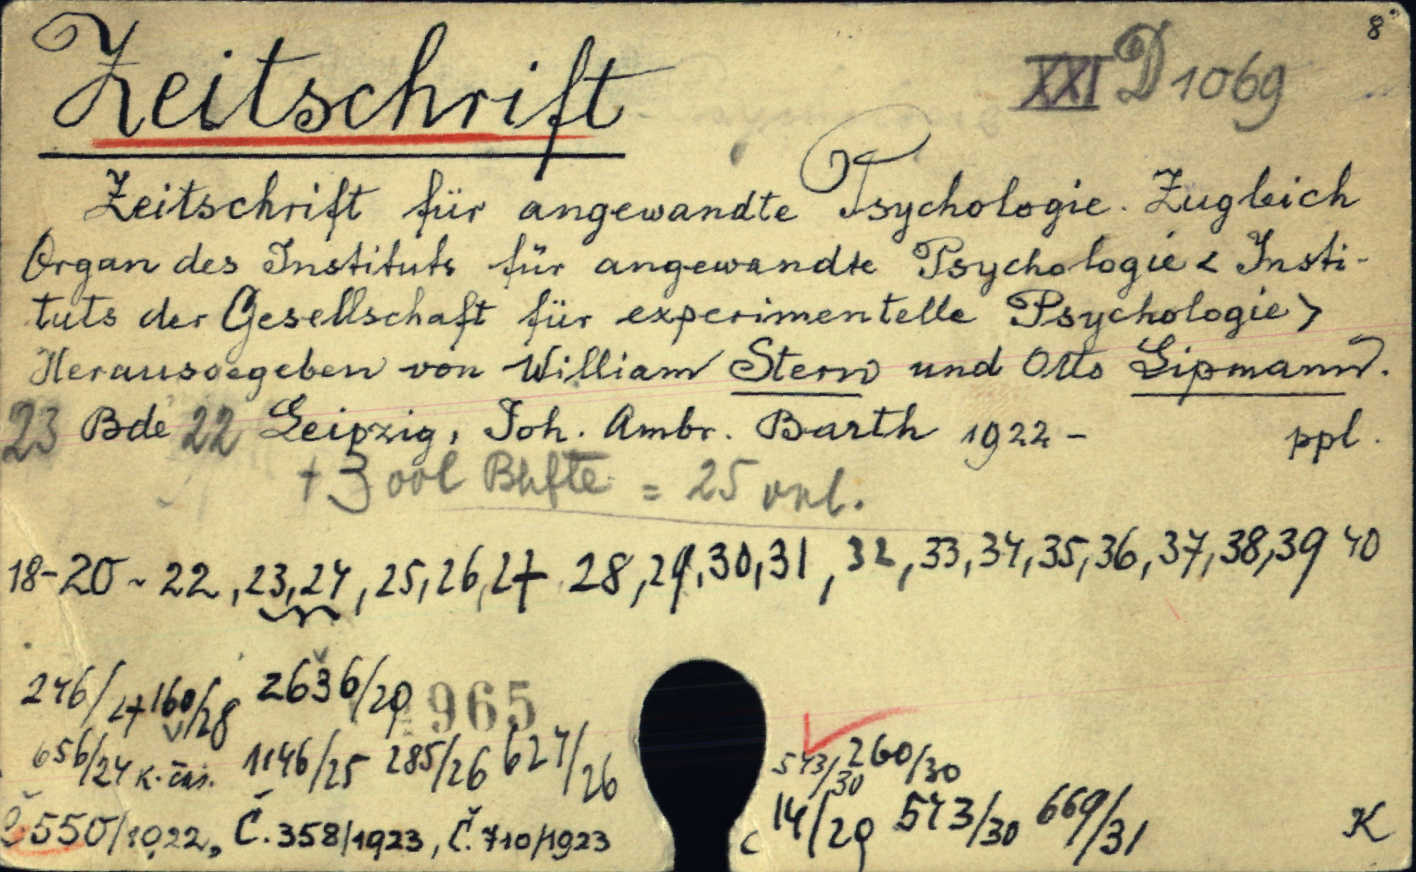 8°
Zeitschrift XXI D 1069
Zeitschrift für angewandte Psychologie. Zugleich
Organ des Instituts für angewandte Psychologie < Insti-
tuts der Gesellschaft für experimentelle Psychologie >
Herausgegeben von William Stern und Otto Lipmann.
23 Bde 22 Leipzig, Joh. Ambr. Barth 1922 - ppl.
+ 3 Bhfte = 25
18-20 - 22, 23, 24, 25, 26, 27 28, 29, 30, 31, 32, 33, 34, 35, 36, 37, 38, 39 40
246/27 160/28 2636/29 965
656/24 K. čas. 1146/25 285/26 627/26 543/30 260/30
Č 550/1922, Č. 358/1923, Č. 710/1923 14/29 573/30 669/31 K